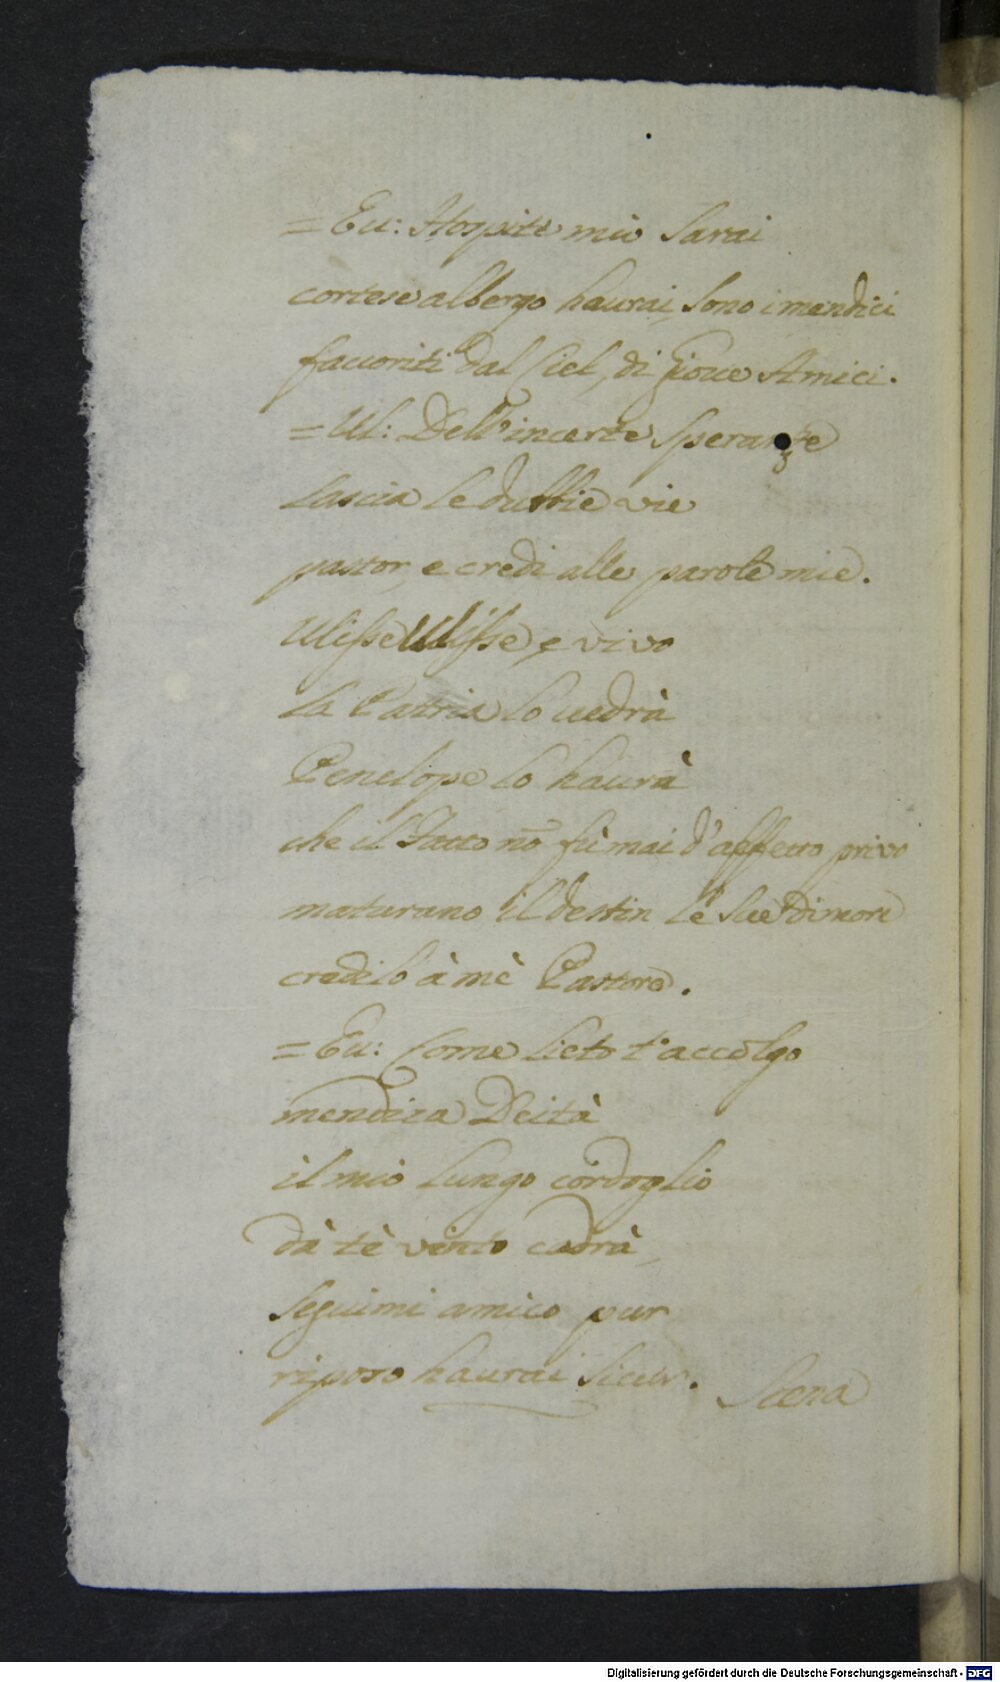 = Eu: Hospite mio sarai
cortese albergo haurai, sono i mendici
fauoriti dal Ciel, di Gioue Amici.
= Ul: Dell'incerte speranze
Lascia le dubbie vie
pastor, e credi alle parole mie.
Ulisse Ulisse, e vivo
La Patria lo uedrà
Penelope lo haurà
che il Fatto nõ fù mai d'affetto privo
maturano il destin le sue dimore
credilo à mè Pastore.
= Eu: Come lieto t'accolgo
mendica Deità
il mio lungo cordoglio
dà tè vinto cadrà,
seguimi amico pur
riposo haurai sicur.
Scena
Digitalisierung gefördert durch die Deutsche Forschungsgemeinschaft - DFG